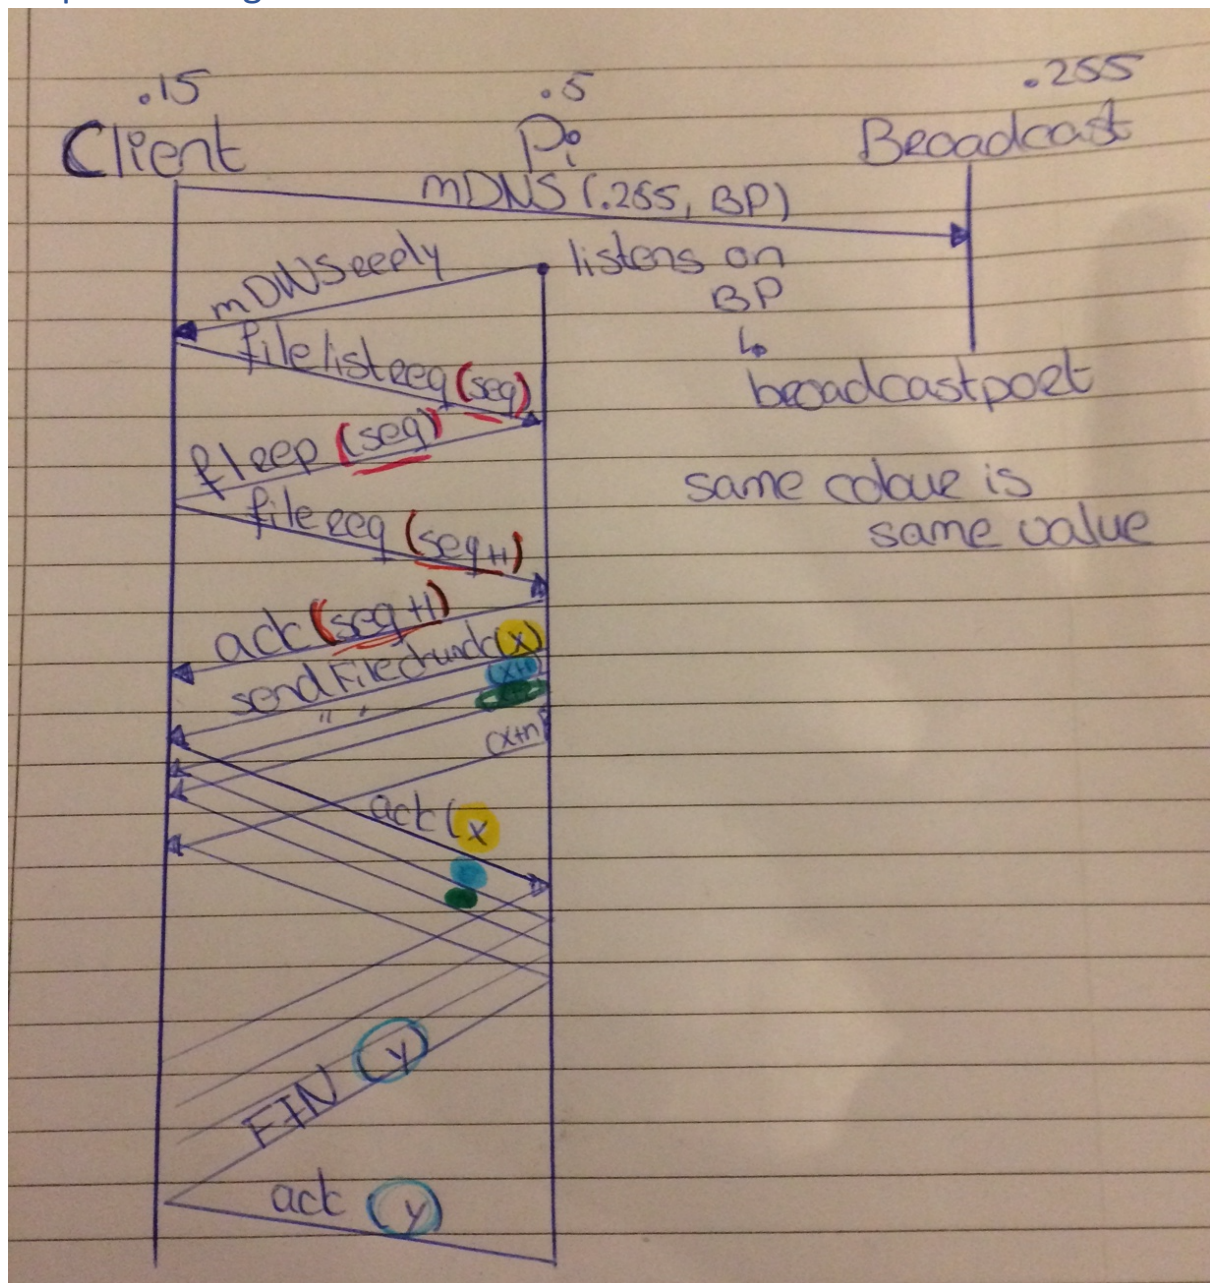 .15 .5 .255
Client Pi Broadcast
mDNS (.255, BP)
mDNSreply
listens on
BP
↳
broadcastport
filelistreq (seq)
flrep (seq)
same colour is
same value
filereq (seq+1)
ack (seq+1)
sendFilechunk (x)
(x+1)
" "
(x+n)
ack (x
FIN (y)
ack (y)